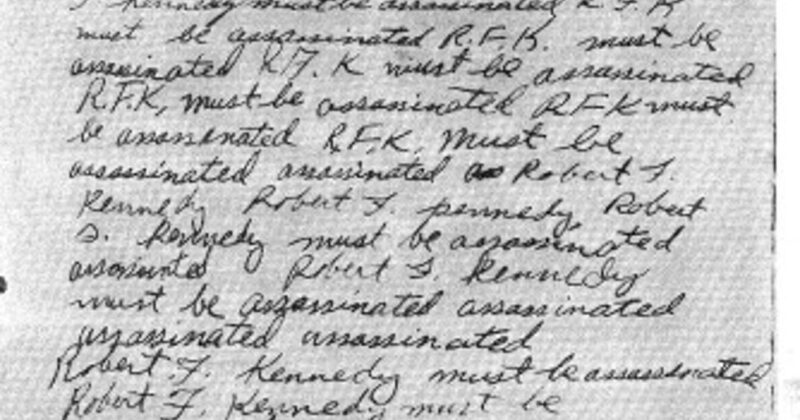 Kennedy must be assassinated R.F.K
must be assassinated R.F.K. must be
assassinated R.F.K must be assassinated
R.F.K, must be assassinated R F K must
be assassinated R.F.K. Must be
assassinated assassinated Robert F.
Kennedy Robert F. pennedy, Robert
F. Kennedy must be assassinated
assassinated Robert F. Kennedy
must be assassinated assassinated
assassinated assassinated
Robert F. Kennedy must be assassinated
Robert F. Kennedy must be